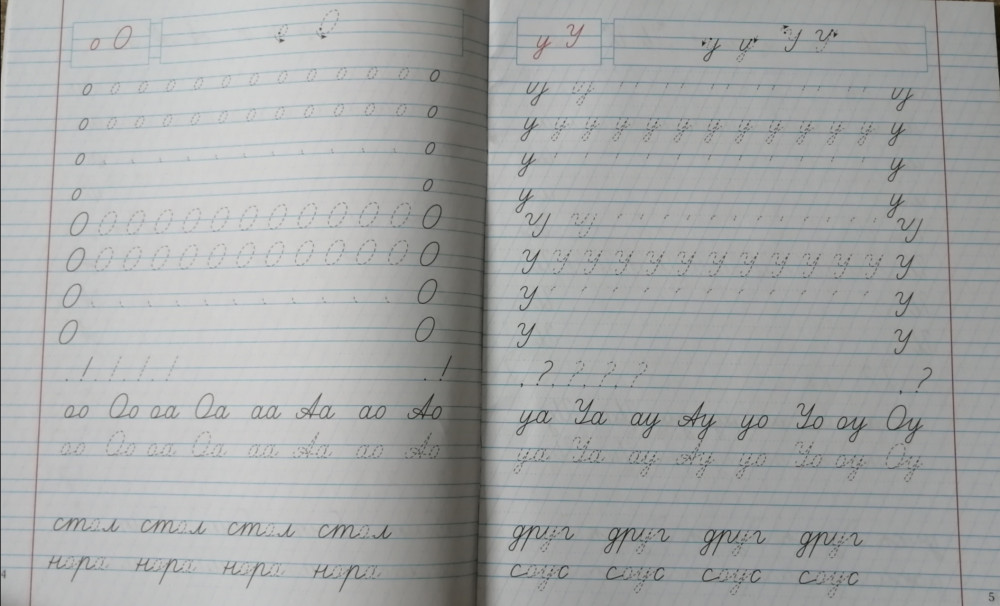 о О о О
о о о о о о о о о о о о о
о о о о о о о о о о о о о
о о
о о
О О О О О О О О О О О О О
О О О О О О О О О О О О О
О О
О О
.!.!.!.! .!
оо Оо оа Оа аа Аа ао Ао
оо Оо оа Оа аа Аа ао Ао
стол стол стол стол
нора нора нора нора
4
у У у у У У
у у у
у у у у у у у у у у у у у
у у
у у
У У У
У У У У У У У У У У У У У
У У
У У
.?.?.?.? .?
уа Уа ау Ау уо Уо оу Оу
уа Уа ау Ау уо Уо оу Оу
друг друг друг друг
соус соус соус соус
5